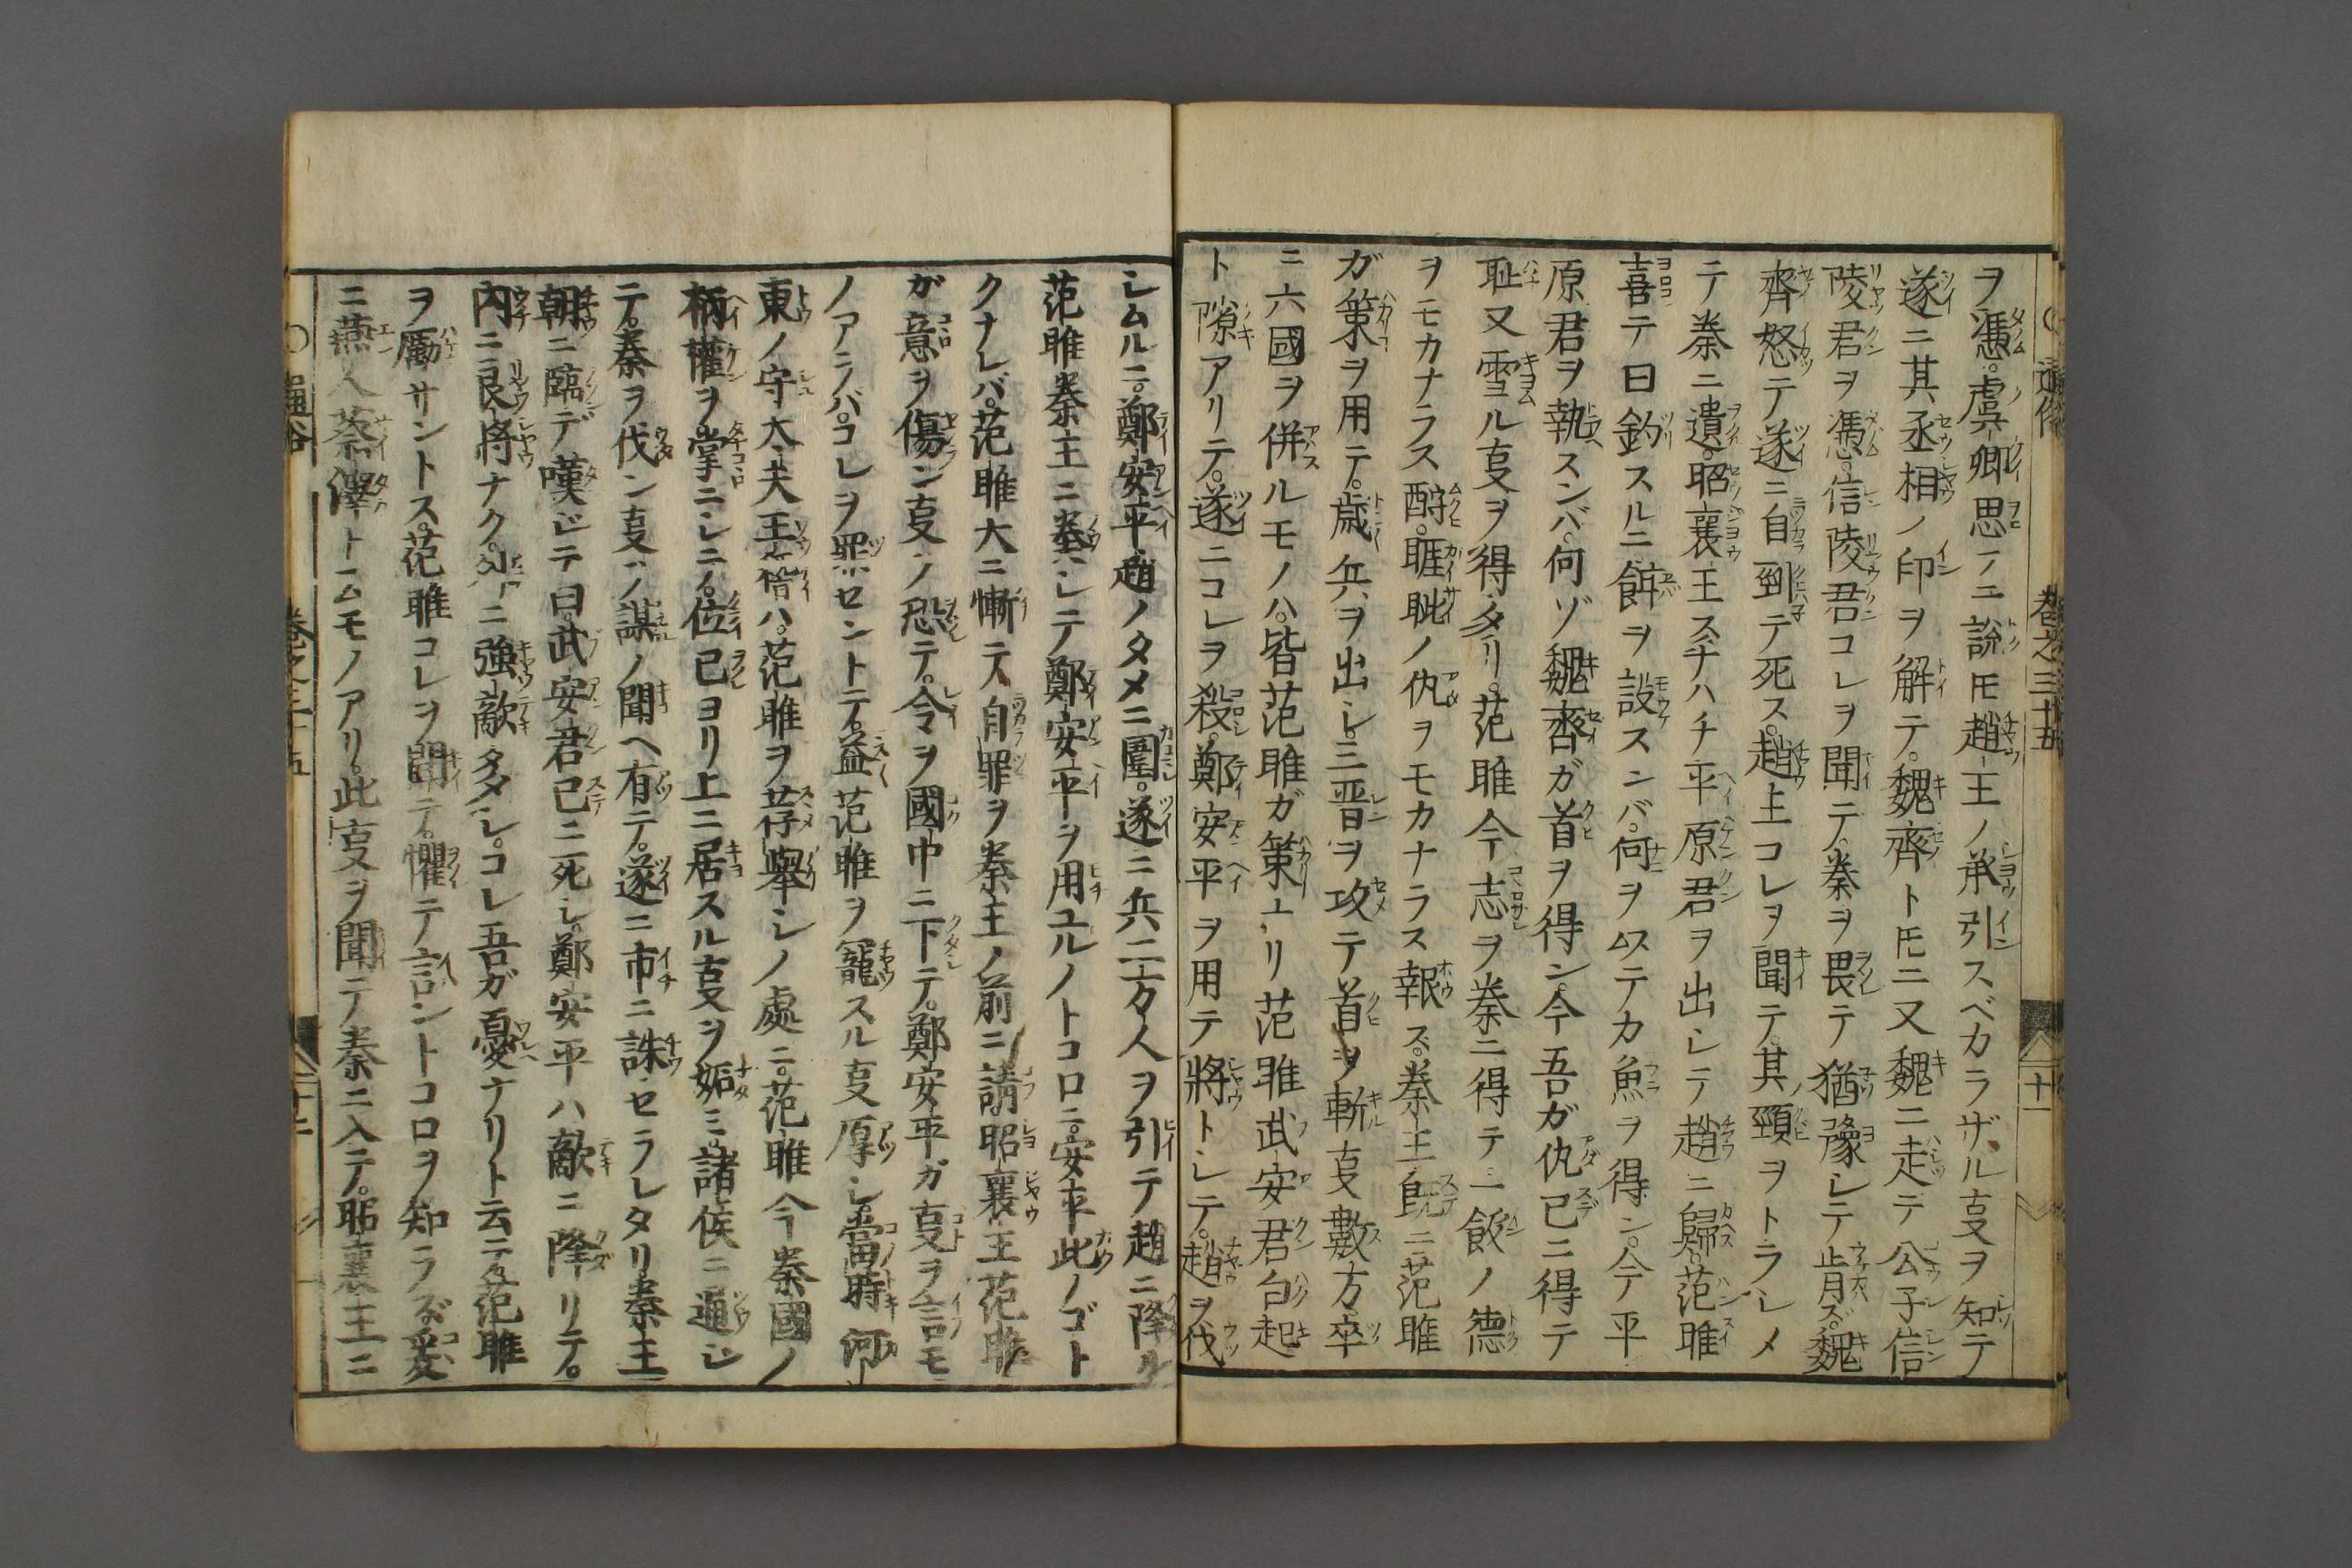 ヲ憑。虞卿思フニ說𪜈趙王ノ承引スベカラザル𫝓ヲ知テ
遂ニ其丞相ノ印ヲ解テ。魏齊ト𪜈ニ又魏ニ走テ公子信
陵君ヲ憑。信陵君コレヲ聞テ。秦ヲ畏テ猶豫シテ肯ズ。魏
齊怒テ遂ニ自剄テ死ス。趙王コレヲ聞テ。其頸ヲトラシメ
テ秦ニ遺。昭襄王スナハチ平原君ヲ出シテ趙ニ歸。范雎
喜テ曰釣スルニ餌ヲ設スンバ。何ヲ以テカ魚ヲ得ン。今平
原君ヲ執スンバ。何ゾ魏齊ガ首ヲ得ン。今吾ガ仇已ニ得テ
恥又雪ル𫝓ヲ得タリ。范雎今志ヲ秦ニ得テ一飯ノ德
ヲモカナラス酧。睚眦ノ仇ヲモカナラス報ス。秦王既ニ范雎
ガ策ヲ用テ。歲〱兵ヲ出シ。三晋ヲ攻テ首ヲ斬𫝓數万。卒
ニ六國ヲ併ルモノハ。皆范雎ガ策ヨリ范雎武安君白起
ト隙アリテ。遂ニコレヲ殺。鄭安平ヲ用テ將トシテ。趙ヲ伐
シムルニ。鄭安平趙ノタメニ圍。遂ニ兵二万人ヲ引テ趙ニ降ル
范雎秦王ニ奏シテ鄭安平ヲ用ユルノトコロニ。安平此ノゴト
クナレバ。范雎大ニ慚テ自罪ヲ秦王ノ前ニ請昭襄王范雎
ガ意ヲ傷ン𫝓ノ恐テ。令ヲ國中ニ下テ。鄭安平ガ𫝓ヲ言モ
ノアラバ。コレヲ罪セントテ。益范雎ヲ寵スル𫝓厚シ當時河
東ノ守大夫王稽ハ。范雎ヲ荐擧シノ處ニ。范雎今秦國ノ
柄權ヲ掌ニシニ。位己ヨリ上ニ居スル𫝓ヲ妬ミ。諸侯ニ通シ
テ。秦ヲ伐ン𫝓ノ謀ノ聞ヘ有テ。遂ニ市ニ誅セラレタリ。秦王
朝ニ臨デ嘆ジテ曰。武安君已ニ死シ。鄭安平ハ敵ニ降リテ。
內ニ良將ナク。外ニ強敵多シ。コレ吾ガ憂ナリト云テ。范雎
ヲ勵サントス。范雎コレヲ聞テ。懼テ言ントコロヲ知ラズ爰
ニ燕人蔡澤ト云モノアリ。此𫝓ヲ聞テ秦ニ入テ。昭襄王ニ